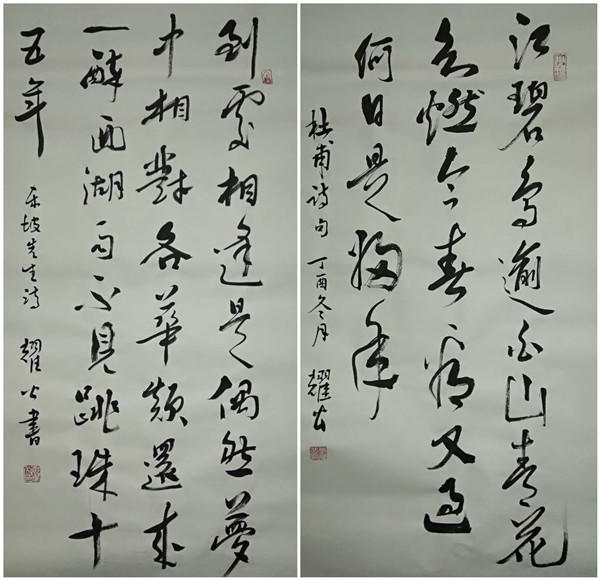 到處相逢是偶然夢
中相對各華顛還來
一醉西湖雨不見跳珠十
五年
东坡先生詩 耀公書
江碧鳥逾白山青花
欲燃今春看又過
何日是歸年
杜甫詩句 丁酉冬月 耀公